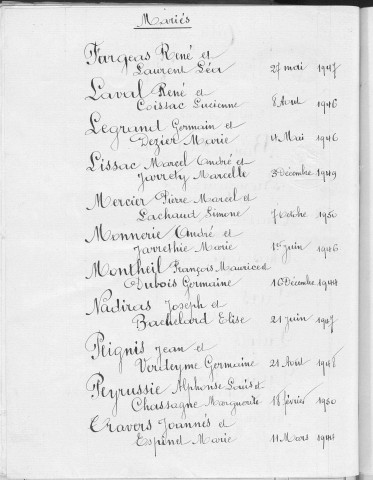 Mariés
Fargeas René et
Laurent Léa 27 mai 1947
Laval René et
Coissac Lucienne 8 Avril 1946
Legrand Germain et
Dezier Marie 11 Mai 1946
Lissac Marcel André et
Javrety Marcelle 3 Décembre 1949
Mercier Pierre Marcel et
Lachaud Simone 7 Octobre 1950
Monnerie André et
Javrethie Marie 1er Juin 1946
Montheil François Maurice et
Dubois Germaine 10 Décembre 1944
Nadiras Joseph et
Bachelard Elise 21 Juin 1947
Peignis Jean et
Vouteyme Germaine 21 Avril 1948
Peyrussie Alphonse Louis et
Chassagne Marguerite 18 février 1950
Travers Joannés et
Marie 11 Mars 1944